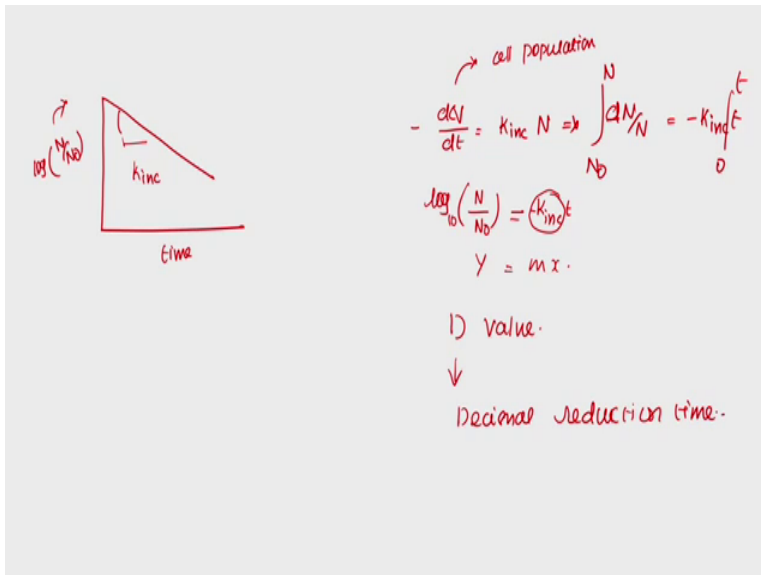 log(N/N0)
Kinc
time
cell population
- dN/dt = Kinc N => ∫ N0 N dN/N = -Kinc ∫ 0 t t
log10(N/N0) = -Kinc t
Y = mx.
D value.
↓
Decimal reduction time.